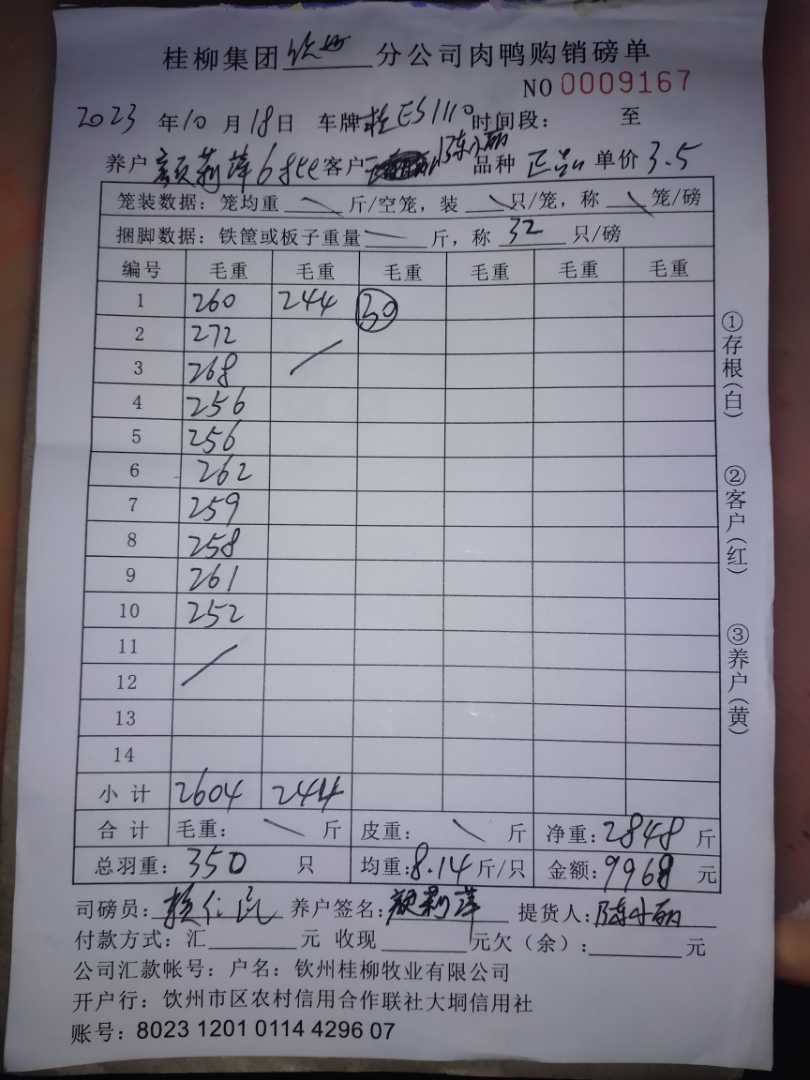 桂柳集团钦州分公司肉鸭购销磅单
NO 0009167
2023年10月18日 车牌桂ES1110 时间段: 至
养户颜莉萍 客户 陈小丽 品种 正品 单价3.5
笼装数据:笼均重 \ 斤/空笼,装 \ 只/笼,称 \ 笼/磅
捆脚数据:铁筐或板子重量 — 斤,称 32 只/磅
编号 毛重 毛重 毛重 毛重 毛重 毛重
1 260 244 30
2 272
3 268 /
4 256
5 256
6 262
7 259
8 258
9 261
10 252
11
12 /
13
14
小计 2604 244
合计 毛重: \ 斤 皮重: \ 斤 净重:2848斤
总羽重:350 只 均重:8.14斤/只 金额:9968元
司磅员: 养户签名:颜莉萍 提货人:陈小丽
付款方式:汇 元 收现 元欠(余): 元
公司汇款帐号:户名:钦州桂柳牧业有限公司
开户行:饮州市区农村信用合作联社大垌信用社
账号:8023 1201 0114 4296 07
①存根(白)
②客户(红)
③养户(黄)